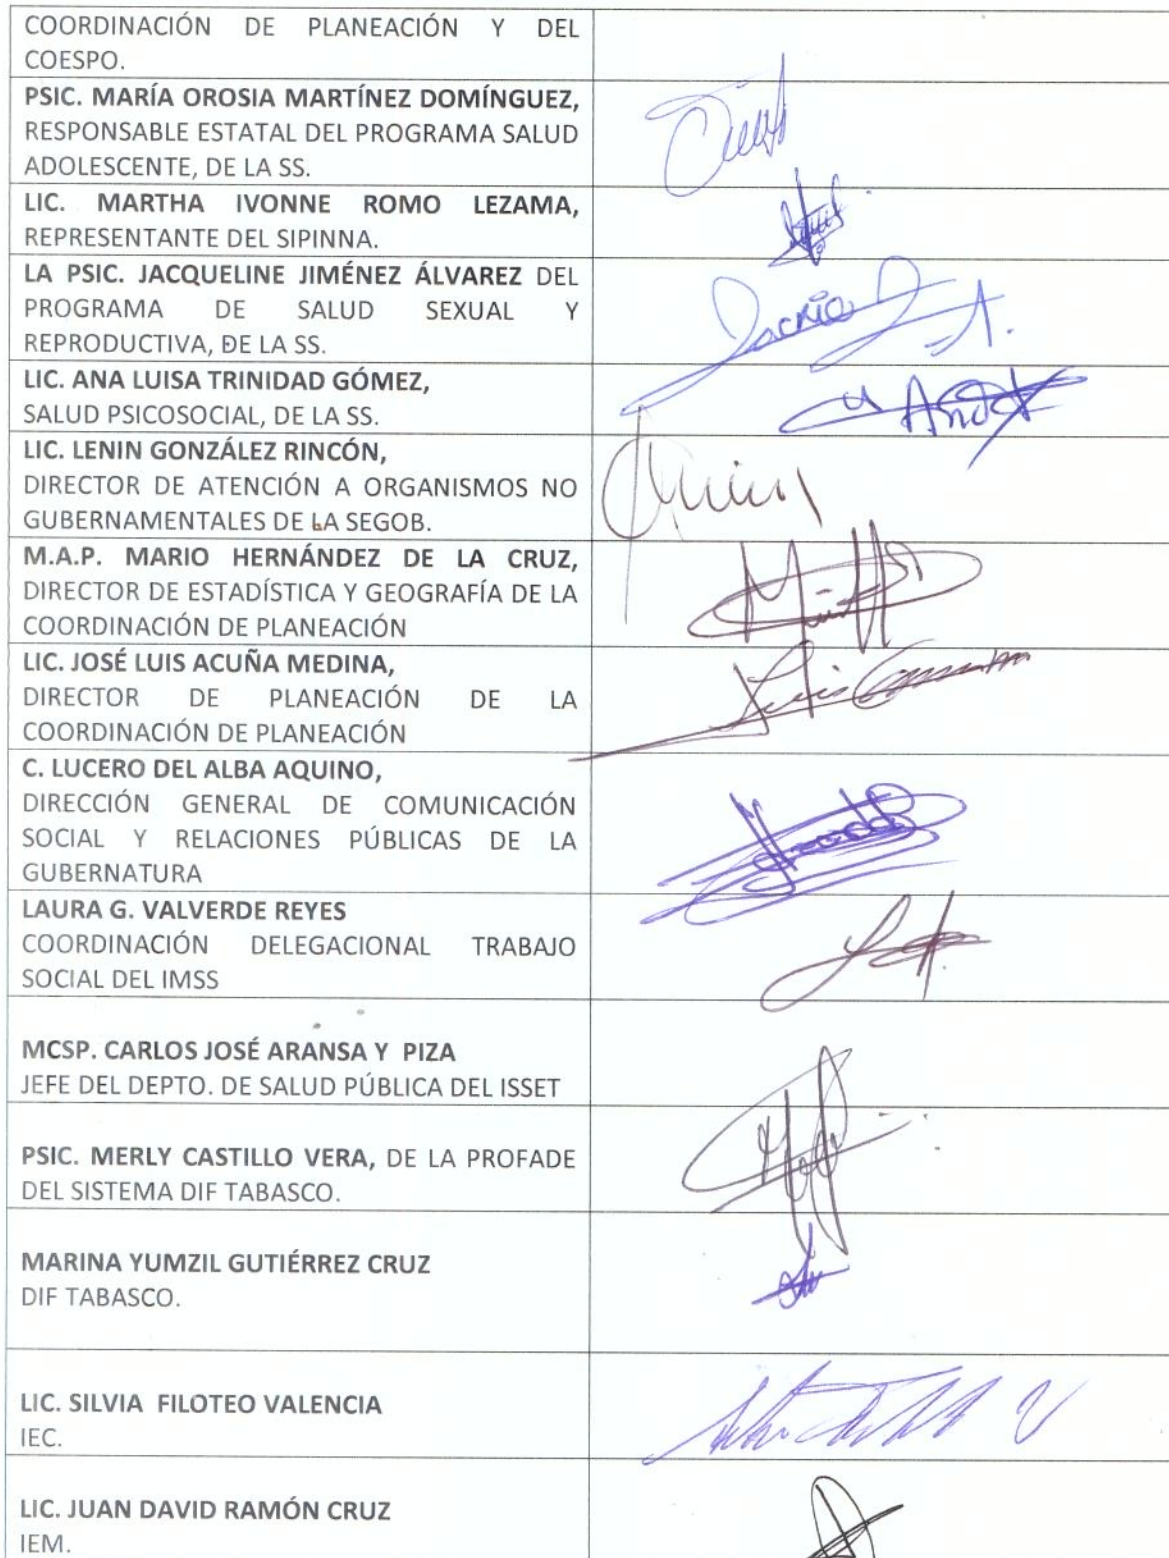 COORDINACIÓN DE PLANEACIÓN Y DEL
COESPO.
PSIC. MARÍA OROSIA MARTÍNEZ DOMÍNGUEZ,
RESPONSABLE ESTATAL DEL PROGRAMA SALUD
ADOLESCENTE, DE LA SS.
LIC. MARTHA IVONNE ROMO LEZAMA,
REPRESENTANTE DEL SIPINNA.
LA PSIC. JACQUELINE JIMÉNEZ ÁLVAREZ DEL
PROGRAMA DE SALUD SEXUAL Y
REPRODUCTIVA, DE LA SS.
Jackie J. A.
LIC. ANA LUISA TRINIDAD GÓMEZ,
SALUD PSICOSOCIAL, DE LA SS.
LIC. LENIN GONZÁLEZ RINCÓN,
DIRECTOR DE ATENCIÓN A ORGANISMOS NO
GUBERNAMENTALES DE LA SEGOB.
M.A.P. MARIO HERNÁNDEZ DE LA CRUZ,
DIRECTOR DE ESTADÍSTICA Y GEOGRAFÍA DE LA
COORDINACIÓN DE PLANEACIÓN
LIC. JOSÉ LUIS ACUÑA MEDINA,
DIRECTOR DE PLANEACIÓN DE LA
COORDINACIÓN DE PLANEACIÓN
C. LUCERO DEL ALBA AQUINO,
DIRECCIÓN GENERAL DE COMUNICACIÓN
SOCIAL Y RELACIONES PÚBLICAS DE LA
GUBERNATURA
LAURA G. VALVERDE REYES
COORDINACIÓN DELEGACIONAL TRABAJO
SOCIAL DEL IMSS
MCSP. CARLOS JOSÉ ARANSA Y PIZA
JEFE DEL DEPTO. DE SALUD PÚBLICA DEL ISSET
PSIC. MERLY CASTILLO VERA, DE LA PROFADE
DEL SISTEMA DIF TABASCO.
MARINA YUMZIL GUTIÉRREZ CRUZ
DIF TABASCO.
LIC. SILVIA FILOTEO VALENCIA
IEC.
LIC. JUAN DAVID RAMÓN CRUZ
IEM.